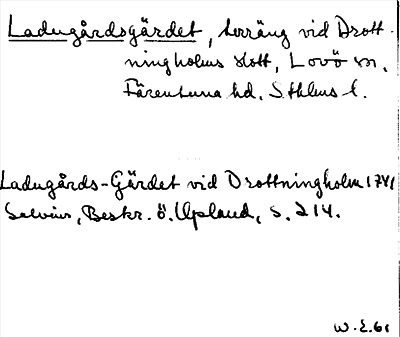 Ladugårdsgärdet, terräng vid Drott-
ningholms slott, Lovö sn,
Färentuna hd, Sthlms l.
Ladugårds-Gärdet vid Drottningholm 1741
Salvius, Beskr. ö. Upland, s. 214.
W.E. 61